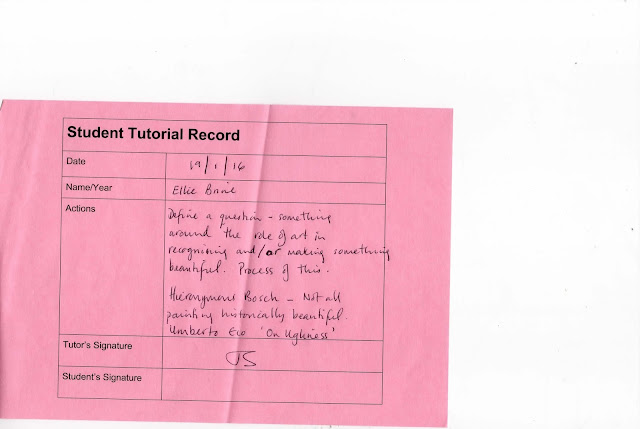 Student Tutorial Record
Date 19/1/16
Name/Year Ellie
Actions
Define a question - something
around the role of art in
recognising and/or making something
beautiful. Process of this.
Hieronymous Bosch - Not all
painting historically beautiful.
Umberto Eco 'On Ugliness'
Tutor's Signature
Student's Signature